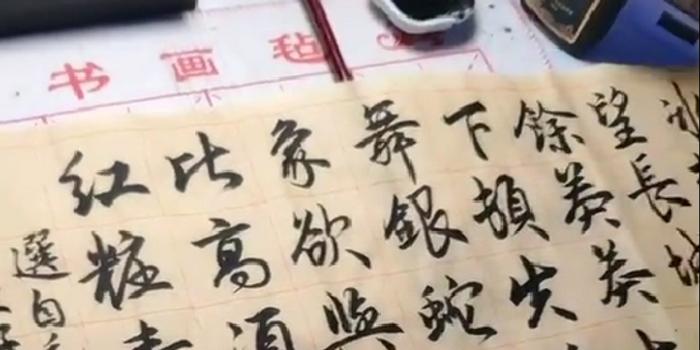 书画毡
望長城
餘莽莽
下頓失
舞銀蛇
象欲與
比高須
紅粧素
選自